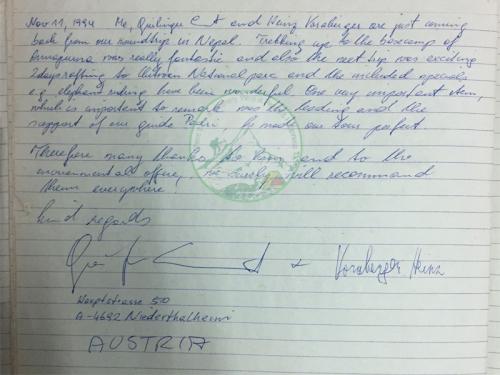 Nov 11, 1994 Me, and Heinz Vorabeger are just coming
back from our roundtrip in Nepal. Trekking up to the basecamp of
Annapurna was really fantastic and also the next trip was exciting
2days rafting to Chitvan National parc and the included specials
e.g. elephant riding have been wonderful. One very important item,
which is important to remark was the leading and the
support of our guide He made our tour perfect.
Therefore many thanks to him and to the
office, we surely will recommand
them everywhere!
kind regards
+ Vorabegger Heinz
Hauptstrasse 50
A-4692 Niederthalheim
AUSTRIA